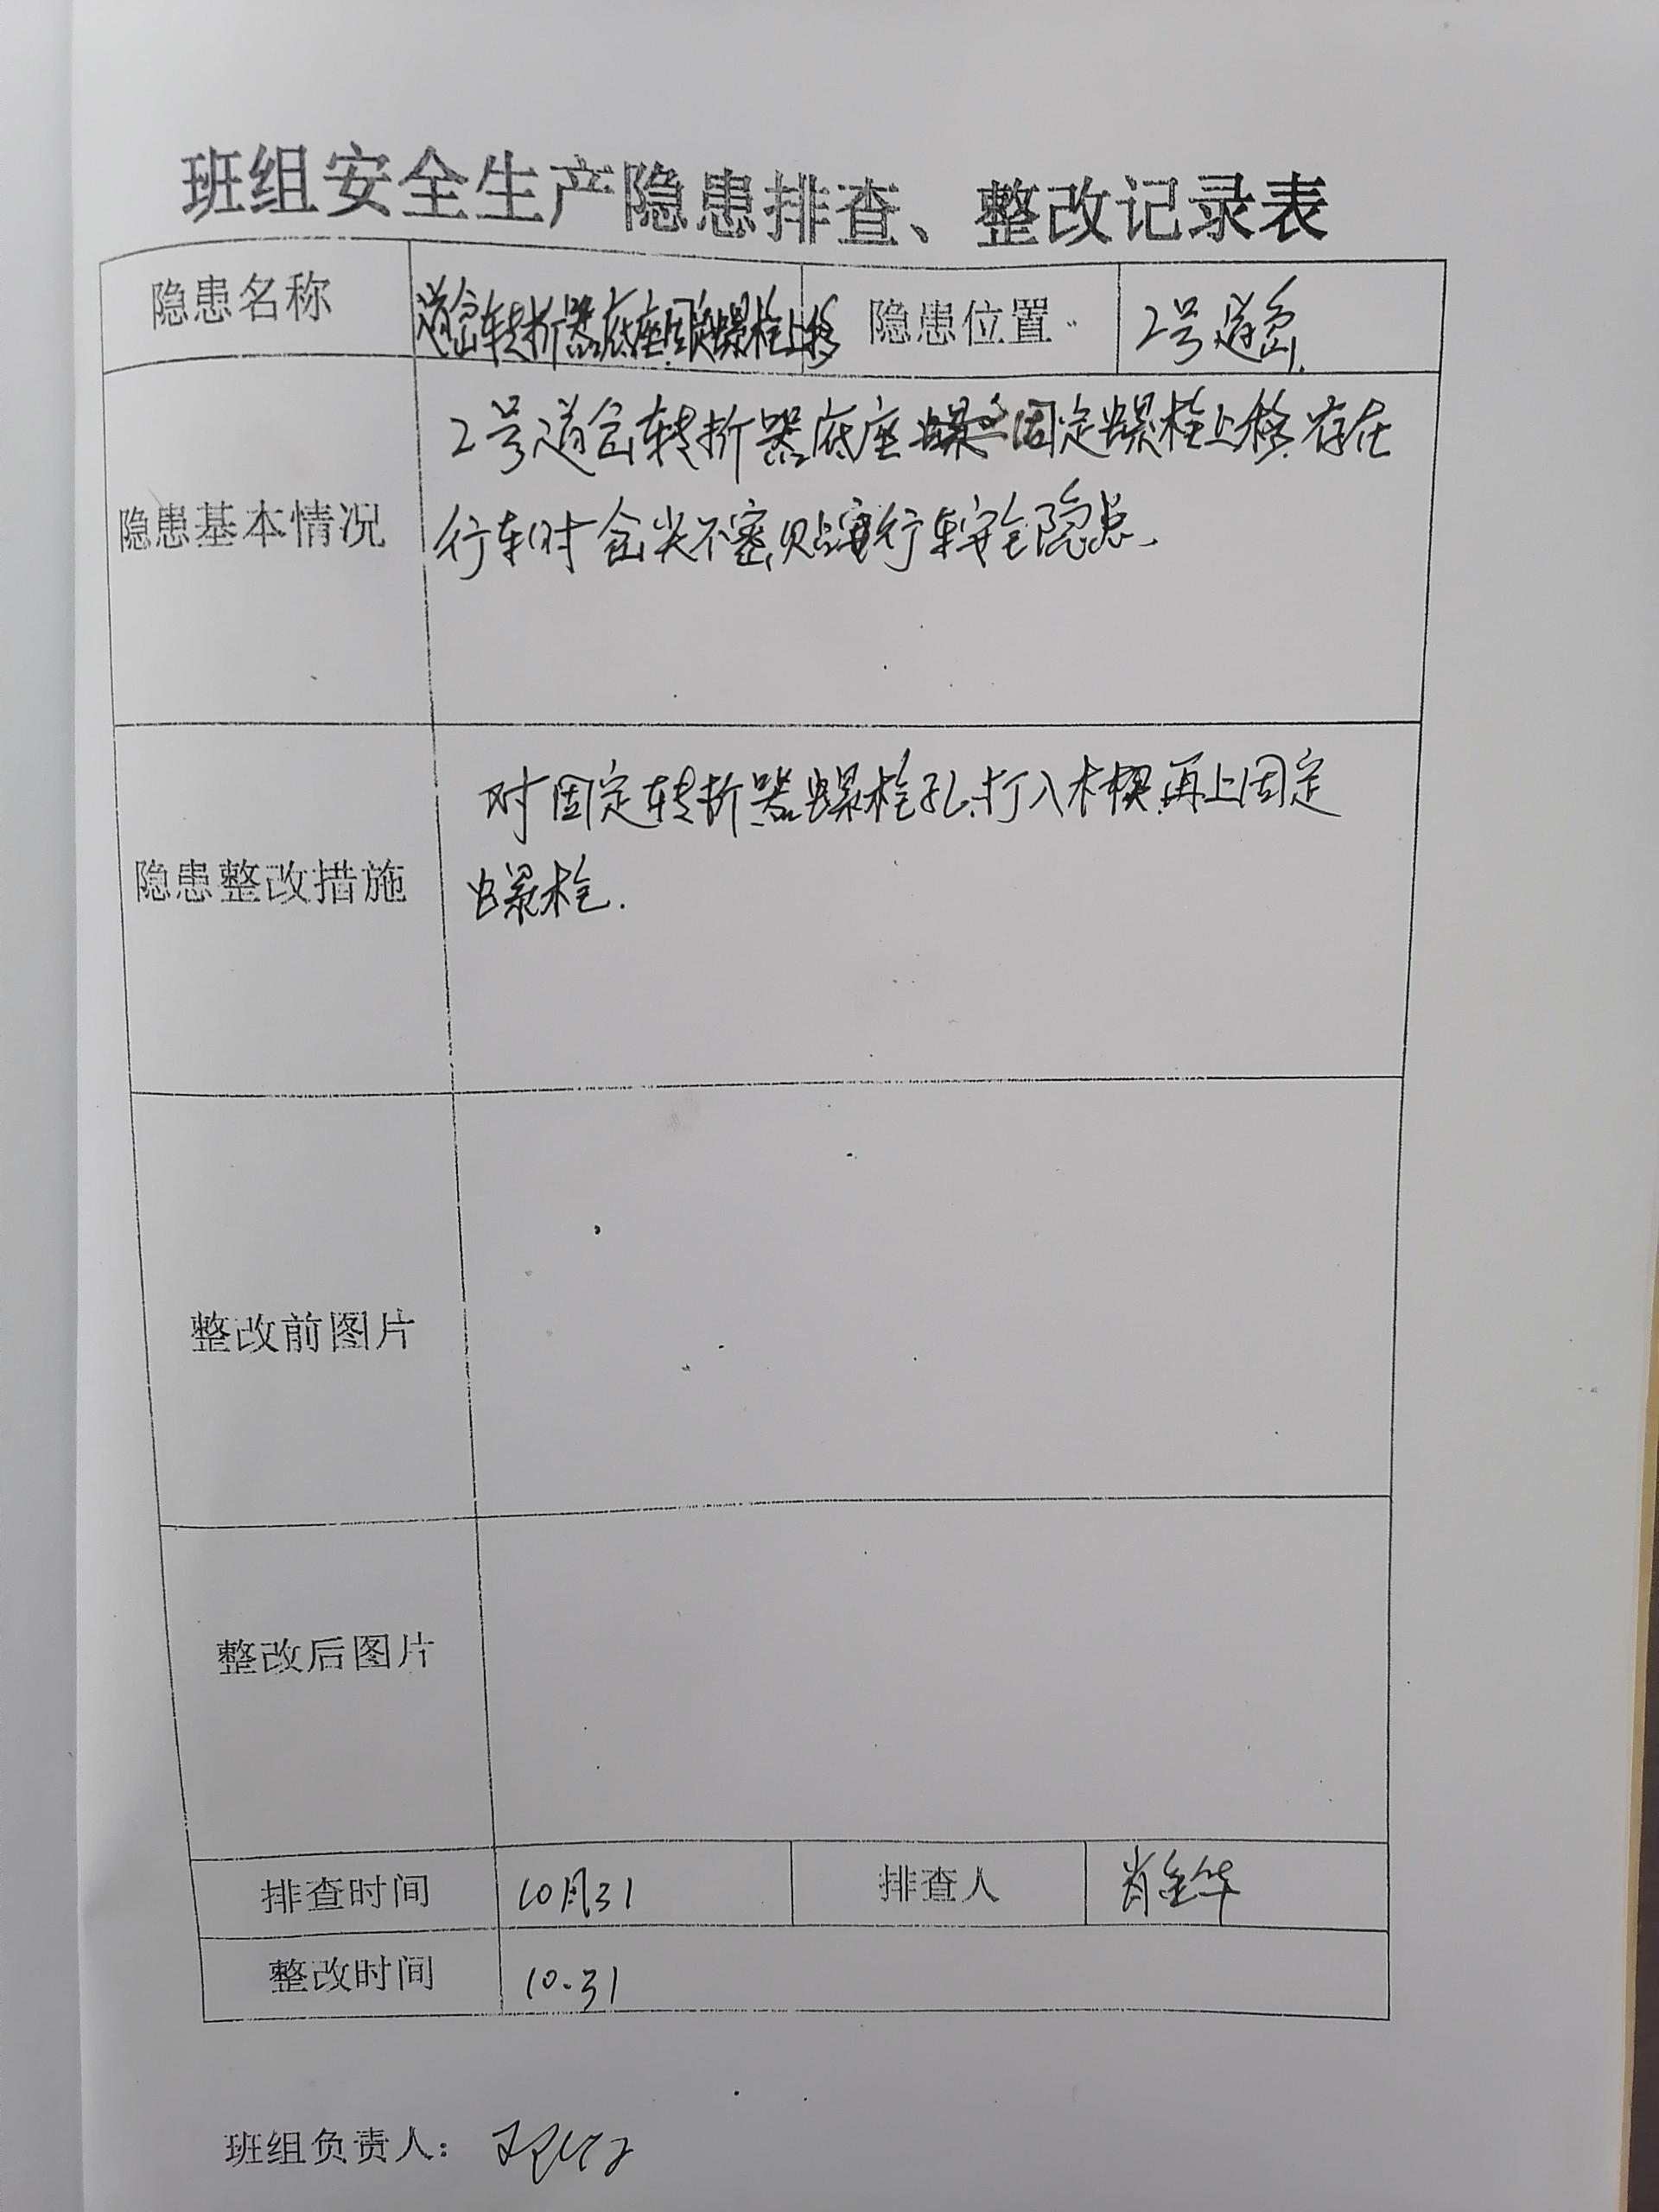 班组安全生产隐患排查、整改记录表
隐患名称 道岔转折器底座固定螺栓上移 隐患位置 2号道岔
隐患基本情况
2号道岔转折器底座 固定螺栓上移.存在
行车时岔尖不密贴 行车安全隐患、
隐患整改措施
对固定转折器螺栓孔.打入木楔.再上固定
螺栓.
整改前图片
整改后图片
排查时间 10月31 排查人 肖金华
整改时间 10.31
班组负责人：